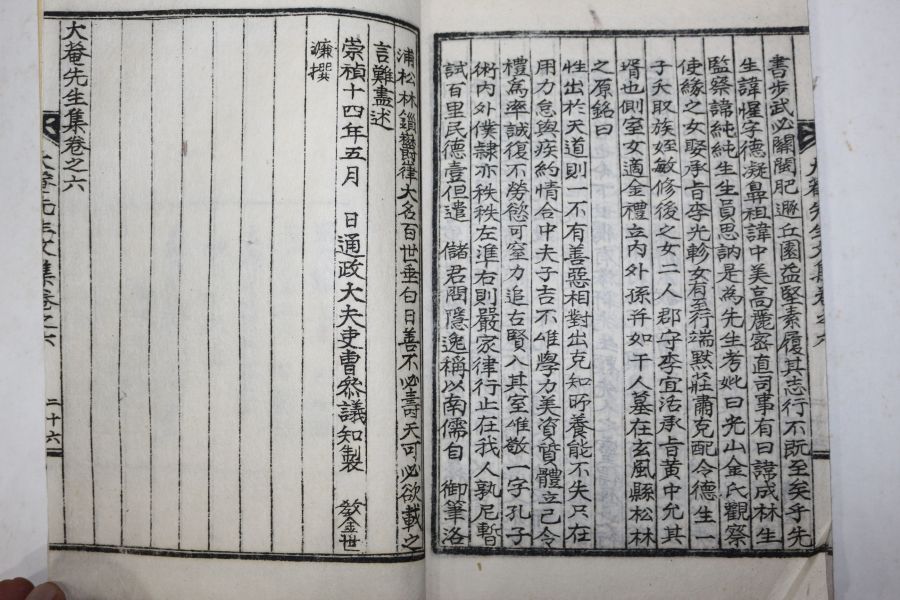 書步武必關閩肥遯丘園益堅素履其志行不旣至矣乎先
生諱惺字德凝鼻祖諱中美高麗密直司事有曰諱成林生
監察諱純純生生員思訥是爲先生考妣曰光山金氏觀察
使緣之女娶承旨李光軫女有至行端默莊肅克配令德生一
子夭取族姪敏修後之女二人郡守李宜活承旨黃中允其
壻也側室女適金禮立內外孫并如干人墓在玄風縣松林
之原銘曰
性出於天道則一不有善惡相對出克知所養能不失只在
用力怠與疾約情合中夫子吉不惟學力美資質體立己令
禮爲率誠復不勞慾可窒力追古賢入其室惟敬一字孔子
術內外僕隷亦秩秩左準右則嚴家律行止在我人孰尼暫
試百里民德壹但遣 儲君問隱逸稱以南儒自 御筆洛
浦松林鎖鬱嵂大名百世垂白日善不必壽天可必欲載之
言難盡述
崇禎十四年五月 日通政大夫吏曹參議知製 敎金世
濂撰
大菴先生集卷之六
二十六